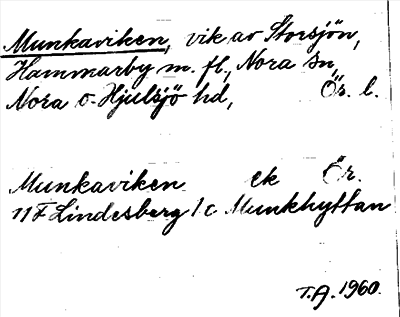 Munkaviken, vik av Storsjön,
Hammarby m. fl., Nora sn,
Nora o. Hjulsjö hd, Ör. l.
Munkaviken ek Ör.
11F Lindesberg 1c Munkhyttan
T.A. 1960.